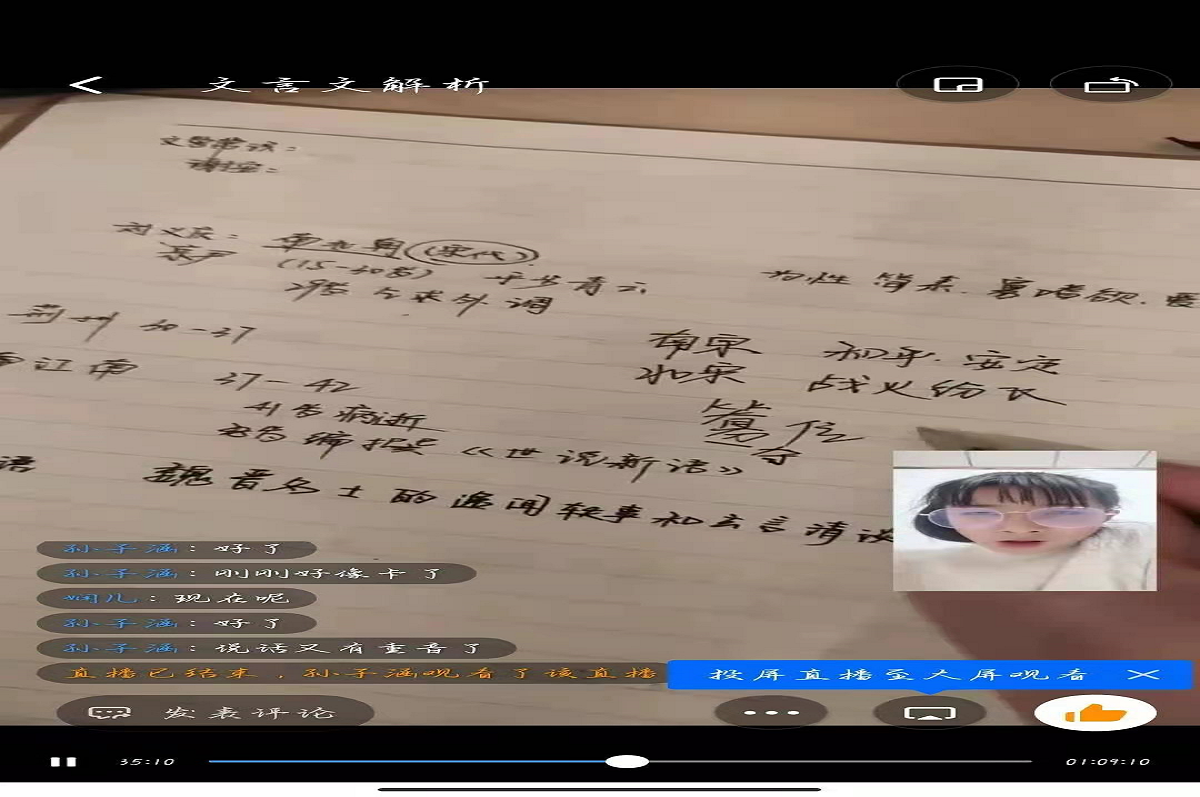 文言文解析
文学常识：
刘义庆：南北朝（宋代）
（15-30岁）平步青云
为性简素.寡嗜欲.爱
乞求外调
荆州 30-37
南宋 初年.安定
北宋 战火纷飞
37-42
41岁病逝
编撰《世说新语》
语 魏晋名士的逸闻轶事和玄言清谈
孙子涵：好了
孙子涵：刚刚好像卡了
娴儿：现在呢
孙子涵：好了
孙子涵：说话又有重音了
直播已结束，孙子涵观看了该直播
投屏直播至大屏观看
发表评论
35:10
01:09:10